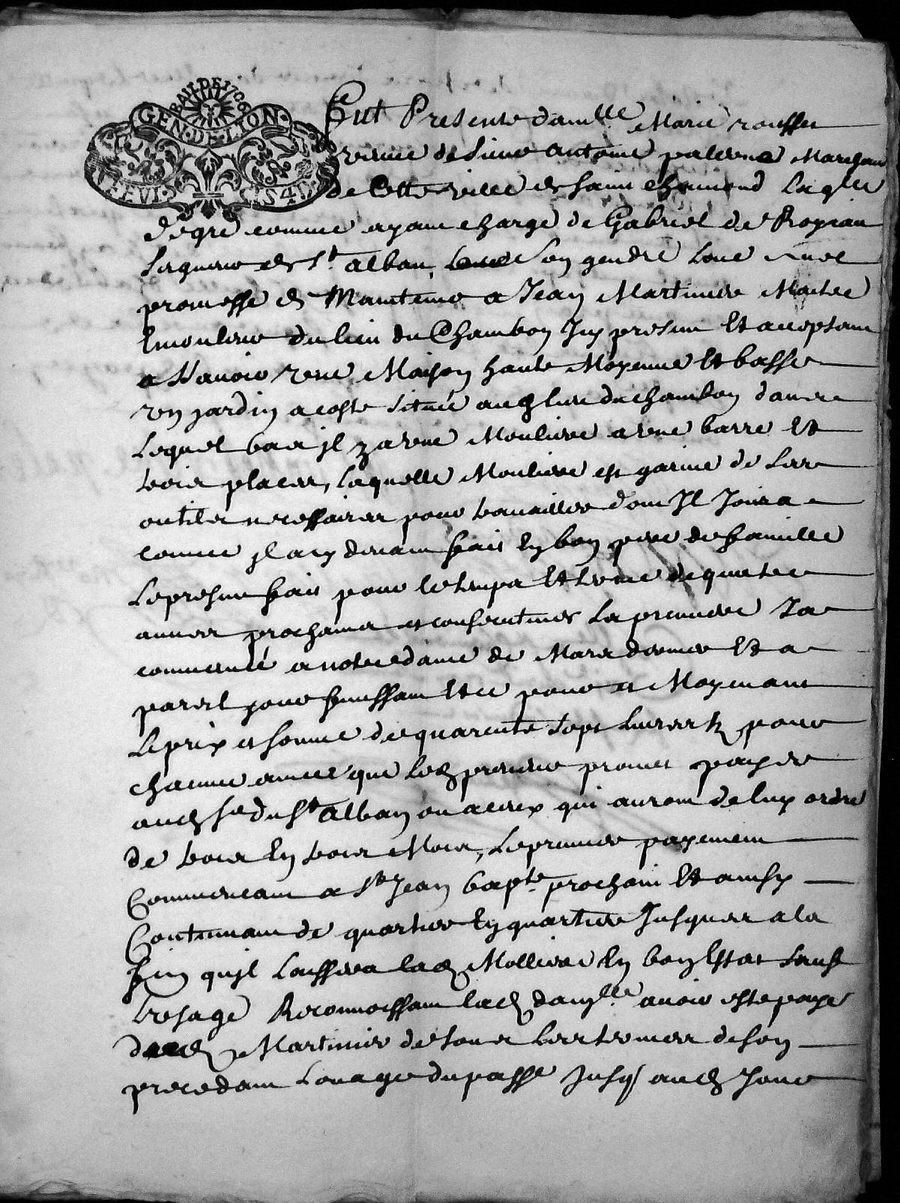 BAIL DE 1706
GEN·DE·LION
Fut Presente dam.lle Marie rousset
vefve de Sieur Antoine palerne Marchan
de Cette ville de Saint chamond Laqlle
de gré comme ayant charge de Gabriel de Royran
de St alban, Son gendre Loue avec
promesse de Maintenir a Jean Martinier Maitre
Emouleur du lieu du Chambon Icy present Et acceptant
a Scavoir une Maison haute Moyenne Et basse
un jardin a coste situé du chambon dans
Lequel bas jl y a une Mouliere a une barre Et
trois places, Laquelle Mouliere est garnie de Ses
outils necessaires pour travailler dont Il Joira
comme fait En bon pere de famille
Le present fait pour le temps Et terme de quatre
années prochaines et consecutives La premiere Ja
commencé a notre dame de Mars dernier Et a
pareil jour finissant Et ce pour et Moyenant
Le prix et somme de quarente Sept Livres pour
chacune année que Led preneur promet payer
aud Sr de St alban ou a ceux qui auront de luy ordre
de trois En trois Mois, Le premier payement
Commencant a St Jean bapte prochain Et ainsy
Continuant de quartier En quartier Jusques a la
fin quil Laissera lad Molliere En bon Estat Sauf
Lusage Reconnoissant lad dam.lle avoir esté payé
dud Martinier de tous Les termes de son
precedant Louage du passé Jusq aud Jour